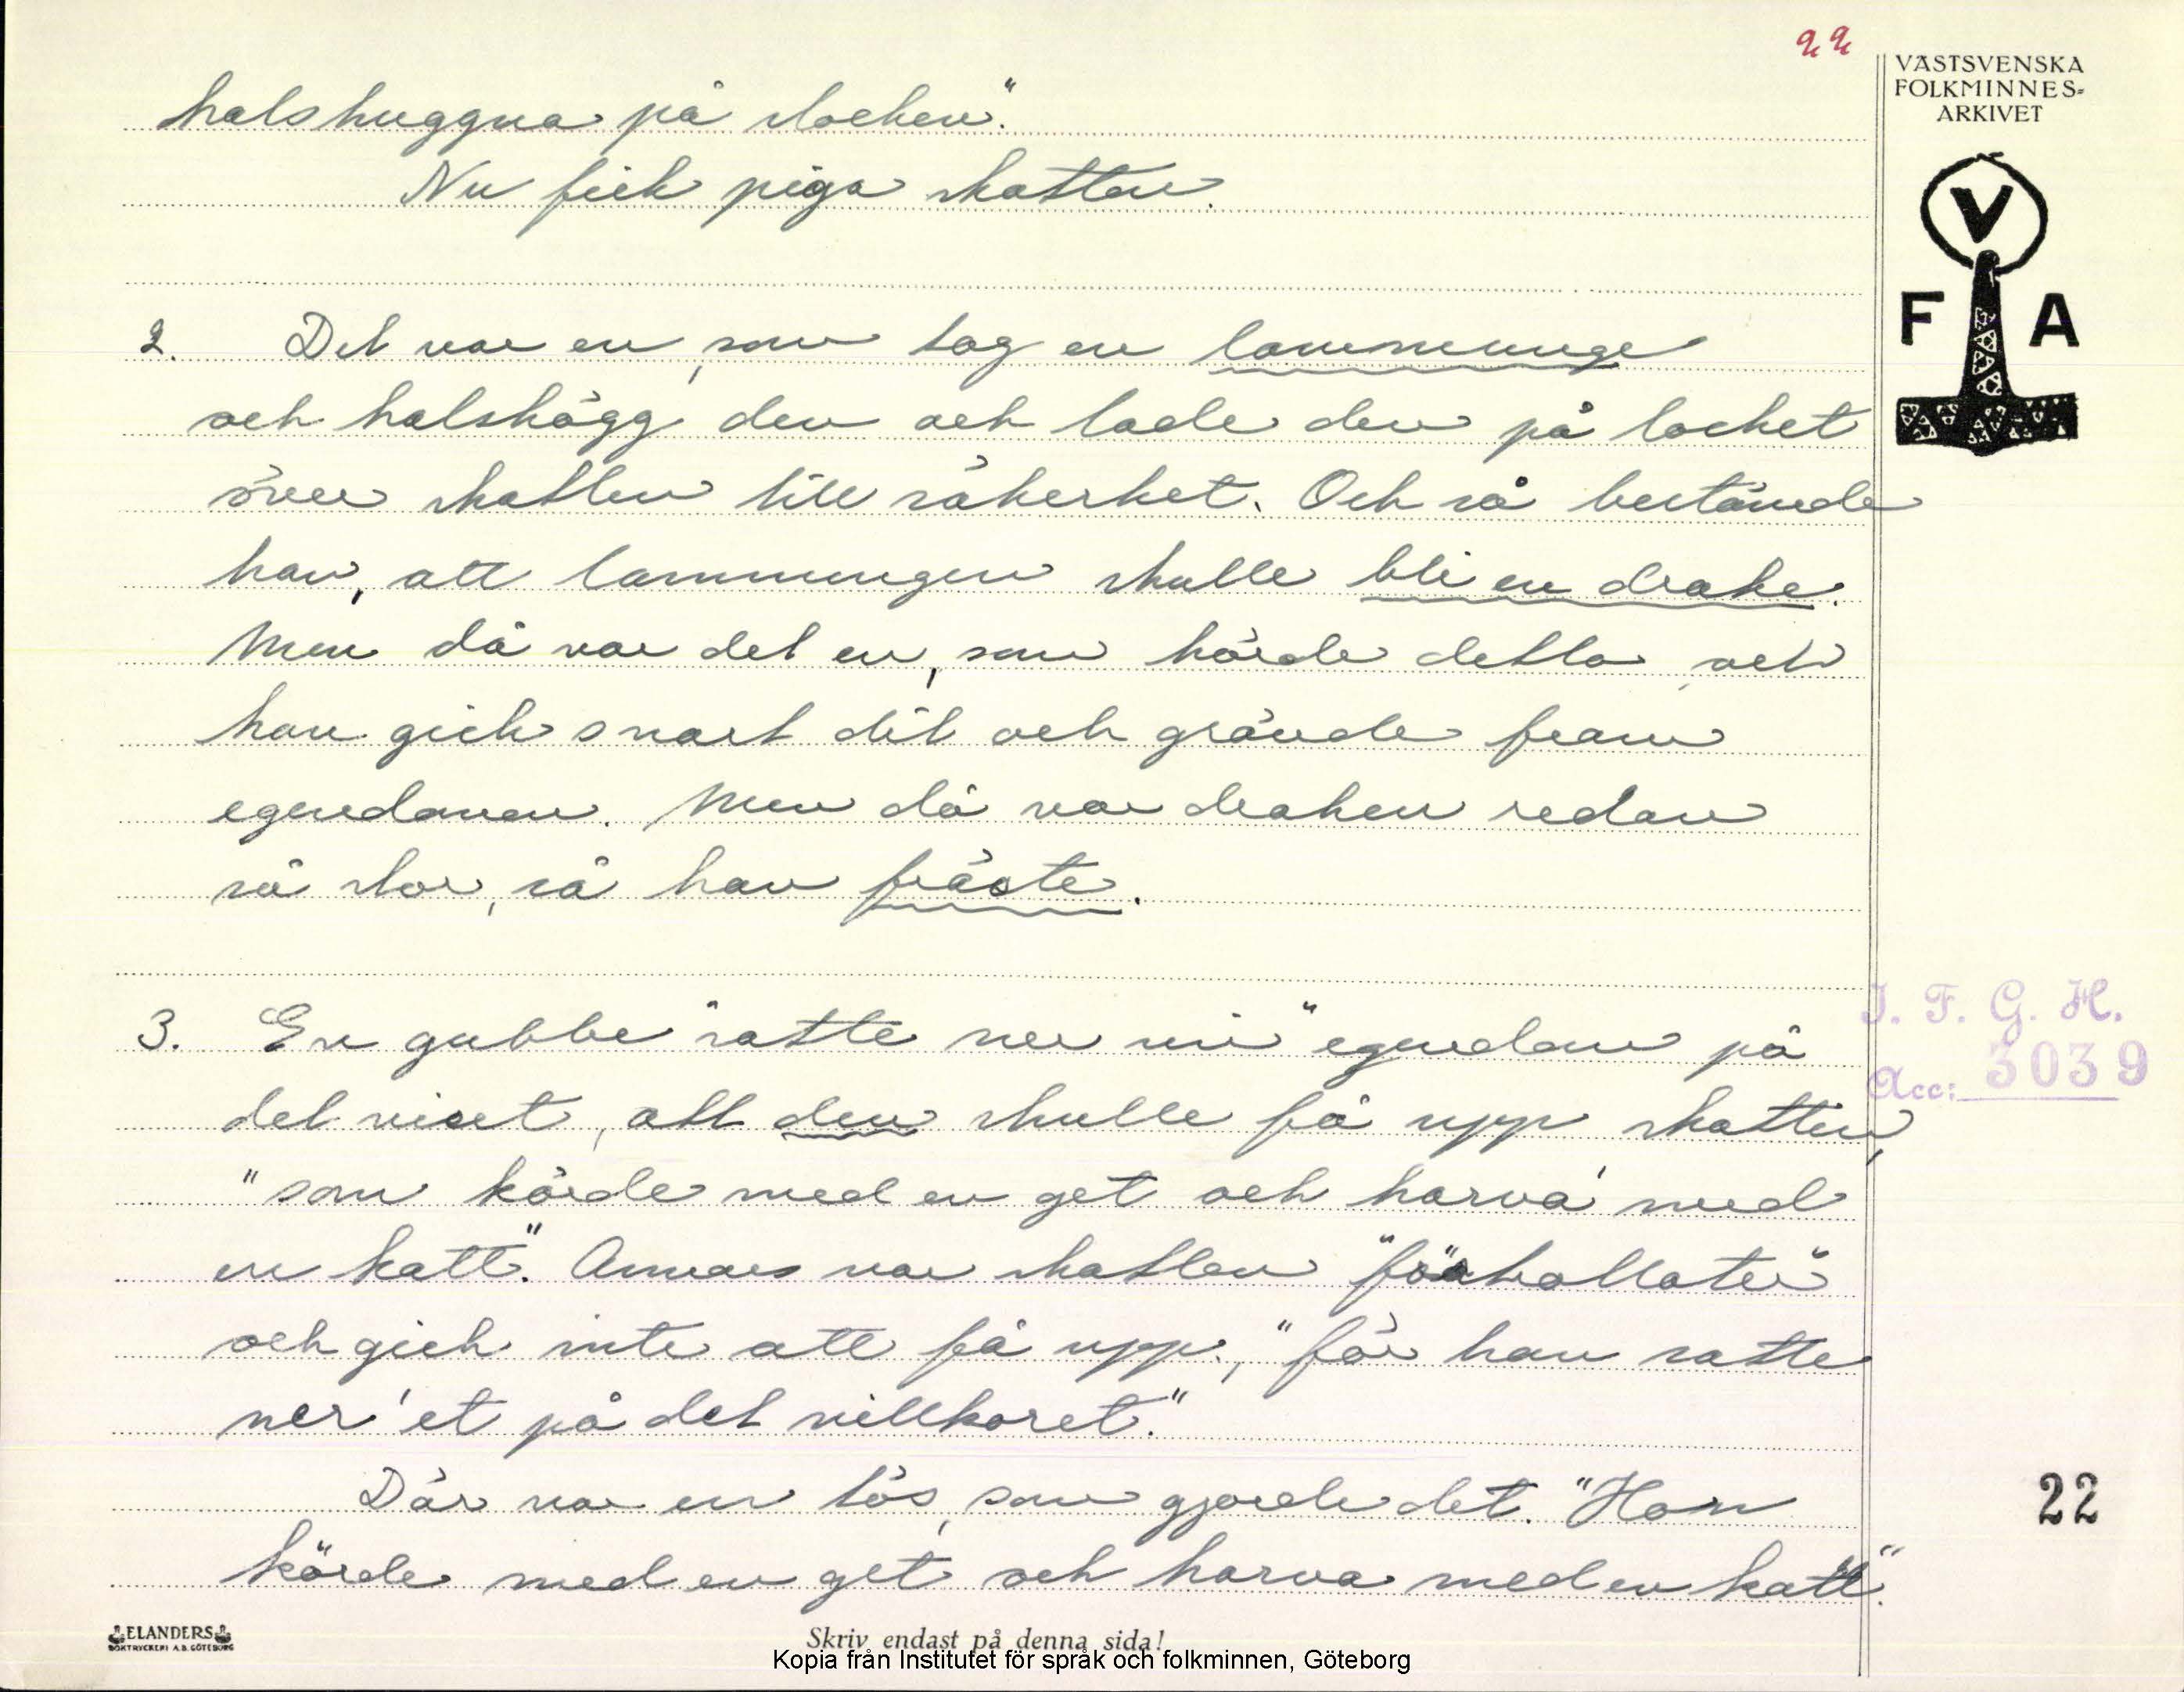 22
VÄSTSVENSKA
FOLKMINNES-
ARKIVET
V
F A
halshuggna på stocken."
Nu fick piga skatten.
2. Det var en, som tog en lammunge
och halshögg den och lade den på locket
över skatten till säkerhet. Och så bestämde
han, att lammungen skulle bli en drake.
Men då var det en, som hörde detta och
han gick snart dit och grävde fram
egendomen. Men då var draken redan
så stor, så han fräste.
3. En gubbe "satte ner en" egendom på
det viset, att den skulle få upp skatten,
"som körde med en get och harva' med
en katt." Annars var skatten "förtrollater"
och gick inte att få upp, "för han satte
ner 'et på det villkoret."
Där var en tös, som gjorde det. "Hon
körde med en get och harva med en katt."
I. F. G. H.
Acc: 3039
22
ELANDERS
BOKTRYCKERI A.B. GÖTEBORG
Skriv endast på denna sida!
Kopia från Institutet för språk och folkminnen, Göteborg